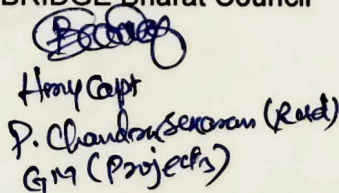 BRIDGE Bharat Council
Hony Capt
P. Chandrasekaran (Retd)
GM (Projects)